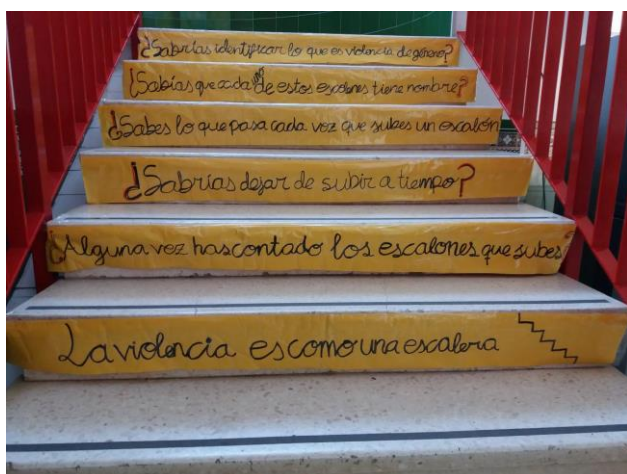 ¿Sabrías identificar lo que es violencia de género?
¿Sabías que cada de estos escalones tiene nombre?
¿Sabes lo que pasa cada vez que subes un escalón
¿Sabrías dejar de subir a tiempo?
¿Alguna vez has contado los escalones que subes
La violencia es como una escalera